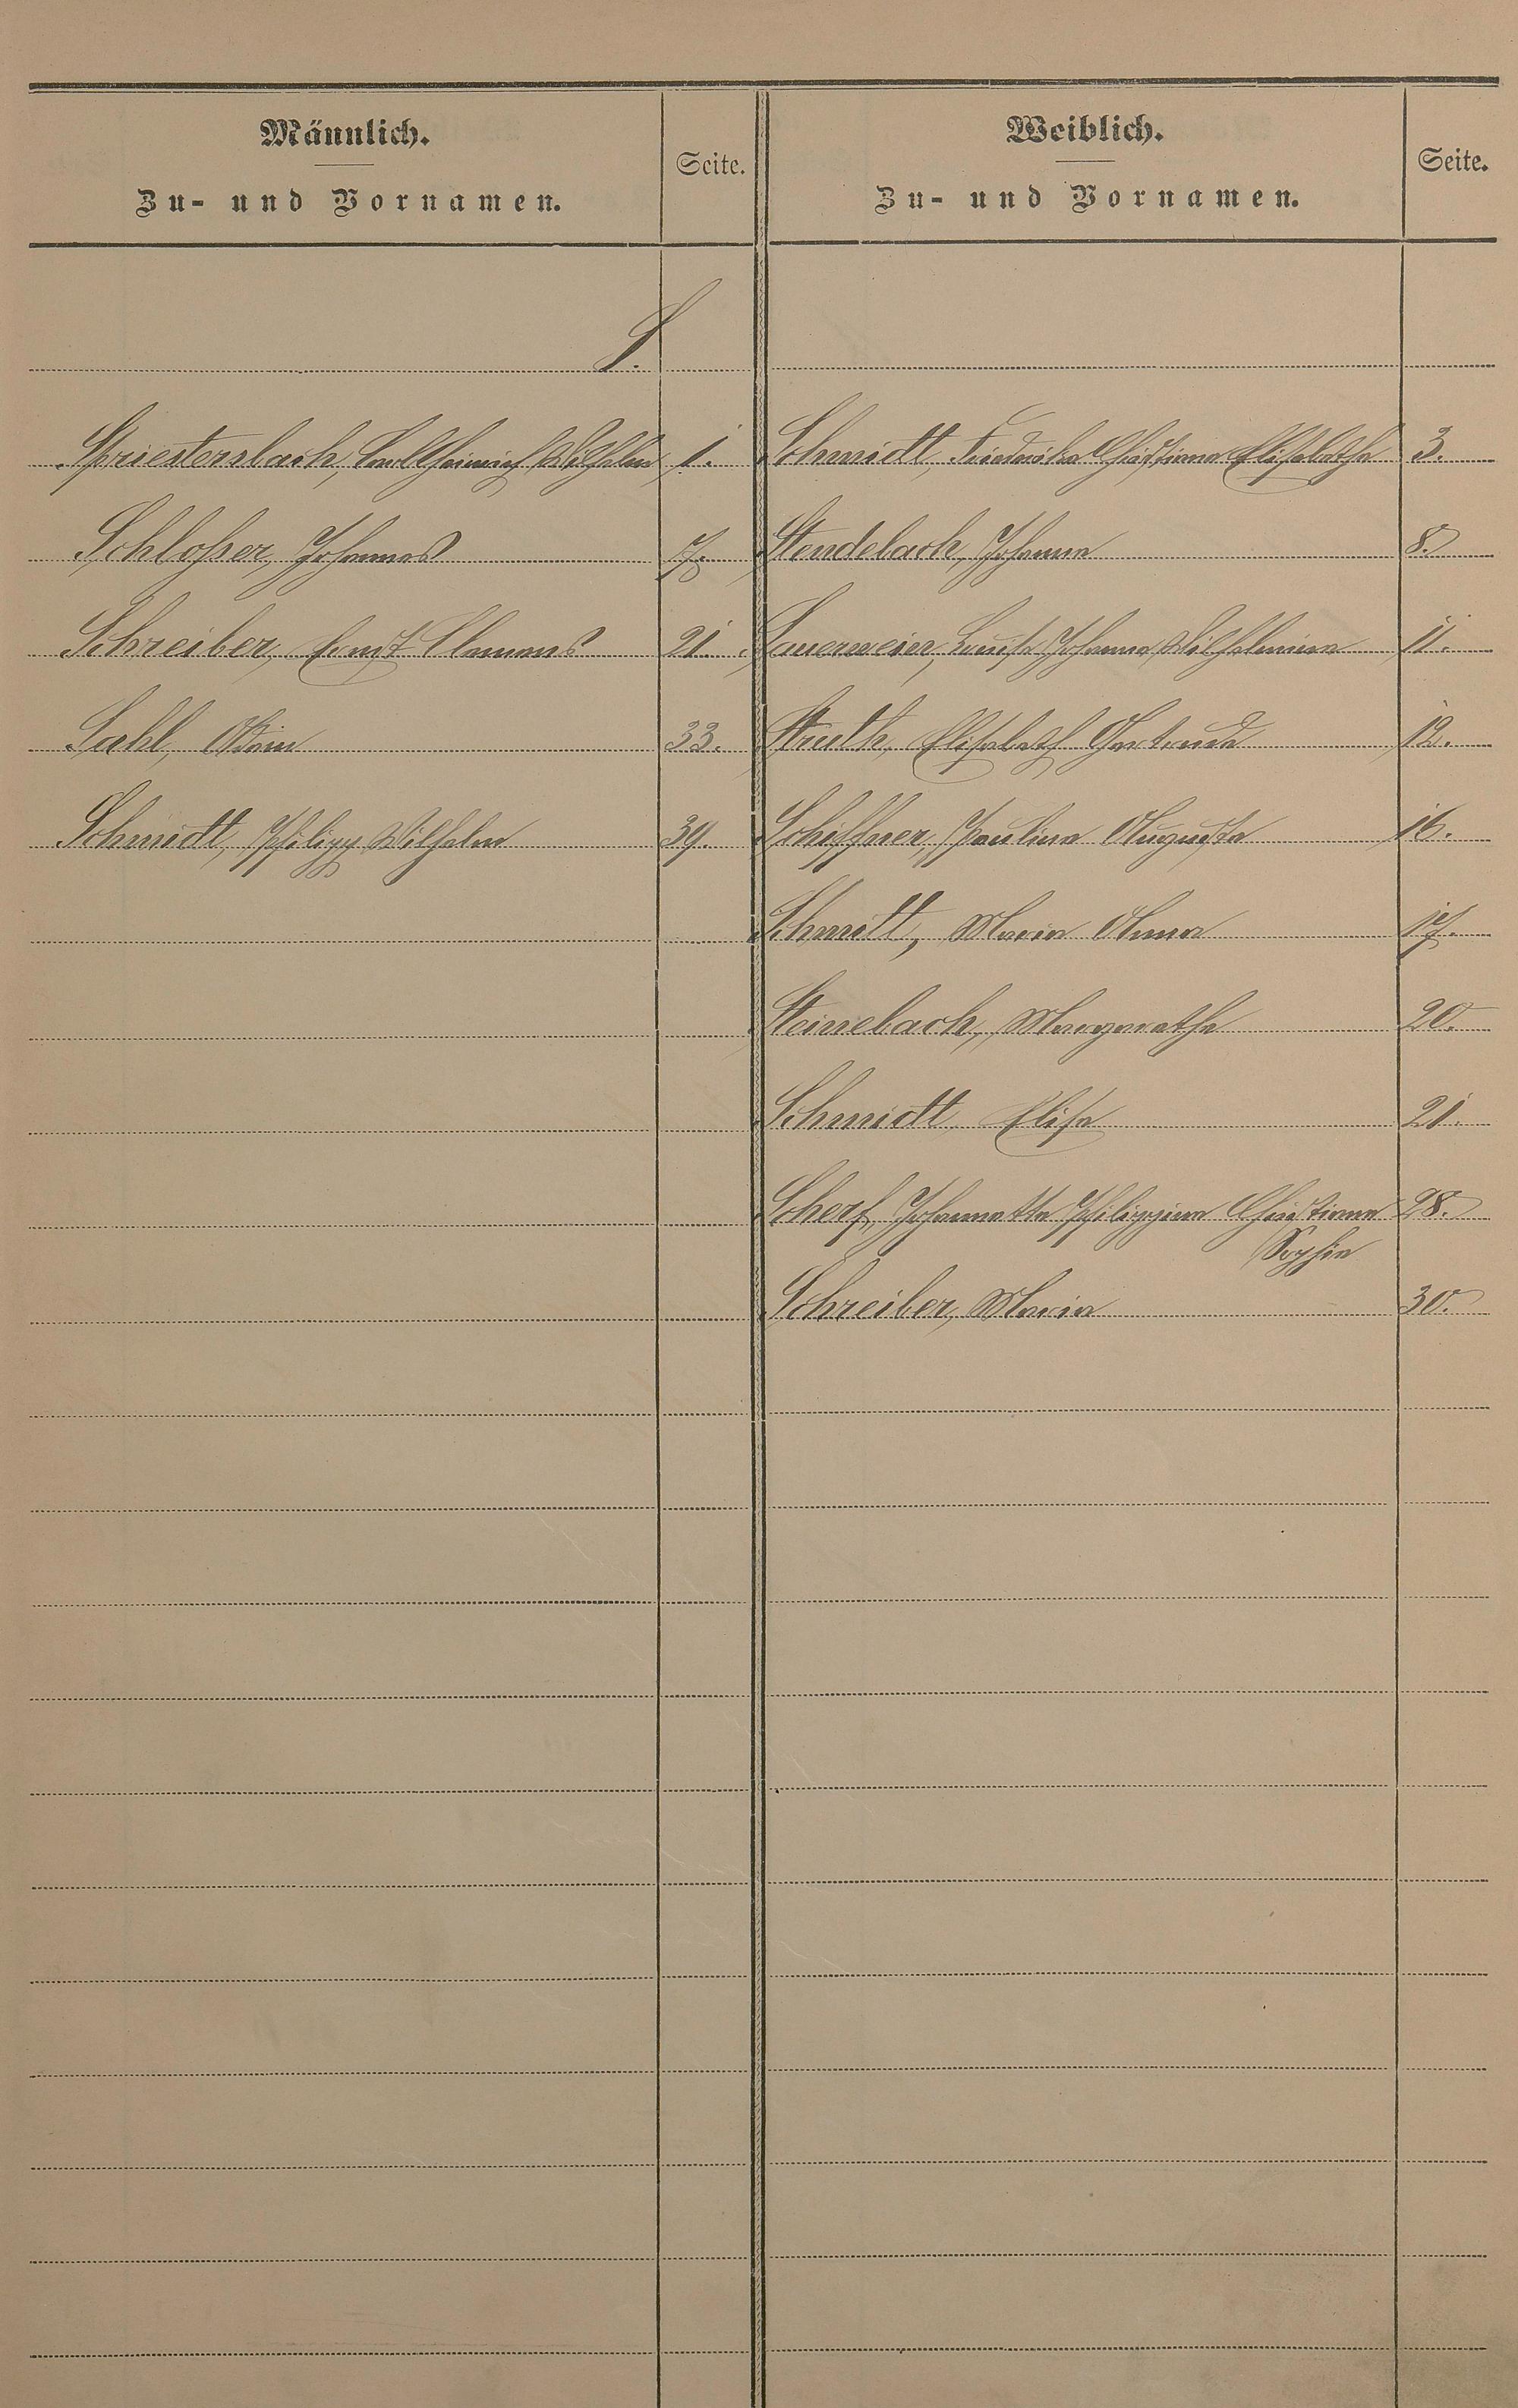 Männlich.
Zu- und Vornamen.
Seite.
Weiblich.
Zu- und Vornamen.
Seite.
S.
Spriestersbach, Carl Heinrich Wilhelm 1.
Schloßer, Johannes 7.
Schreiber, Ernst Clemens 21.
Sahl, 33.
Schmidt, Philipp Wilhelm 39.
Schmidt, Friedrike Christiane Elisabethe 3.
Stendebach, Johanna 8.
Sauerwein, Louise Johanna Wilhelmine 11.
Struth, Elisabeth Gertrude 12.
Schiffner, Pauline Auguste 16.
Schmidt, Maria Anna 17.
Steinebach, Margarethe 20.
Schmidt, Elise 21.
Scherf, Johannette Philippine Christiane 28.
Sophie
Schreiber, Maria 30.